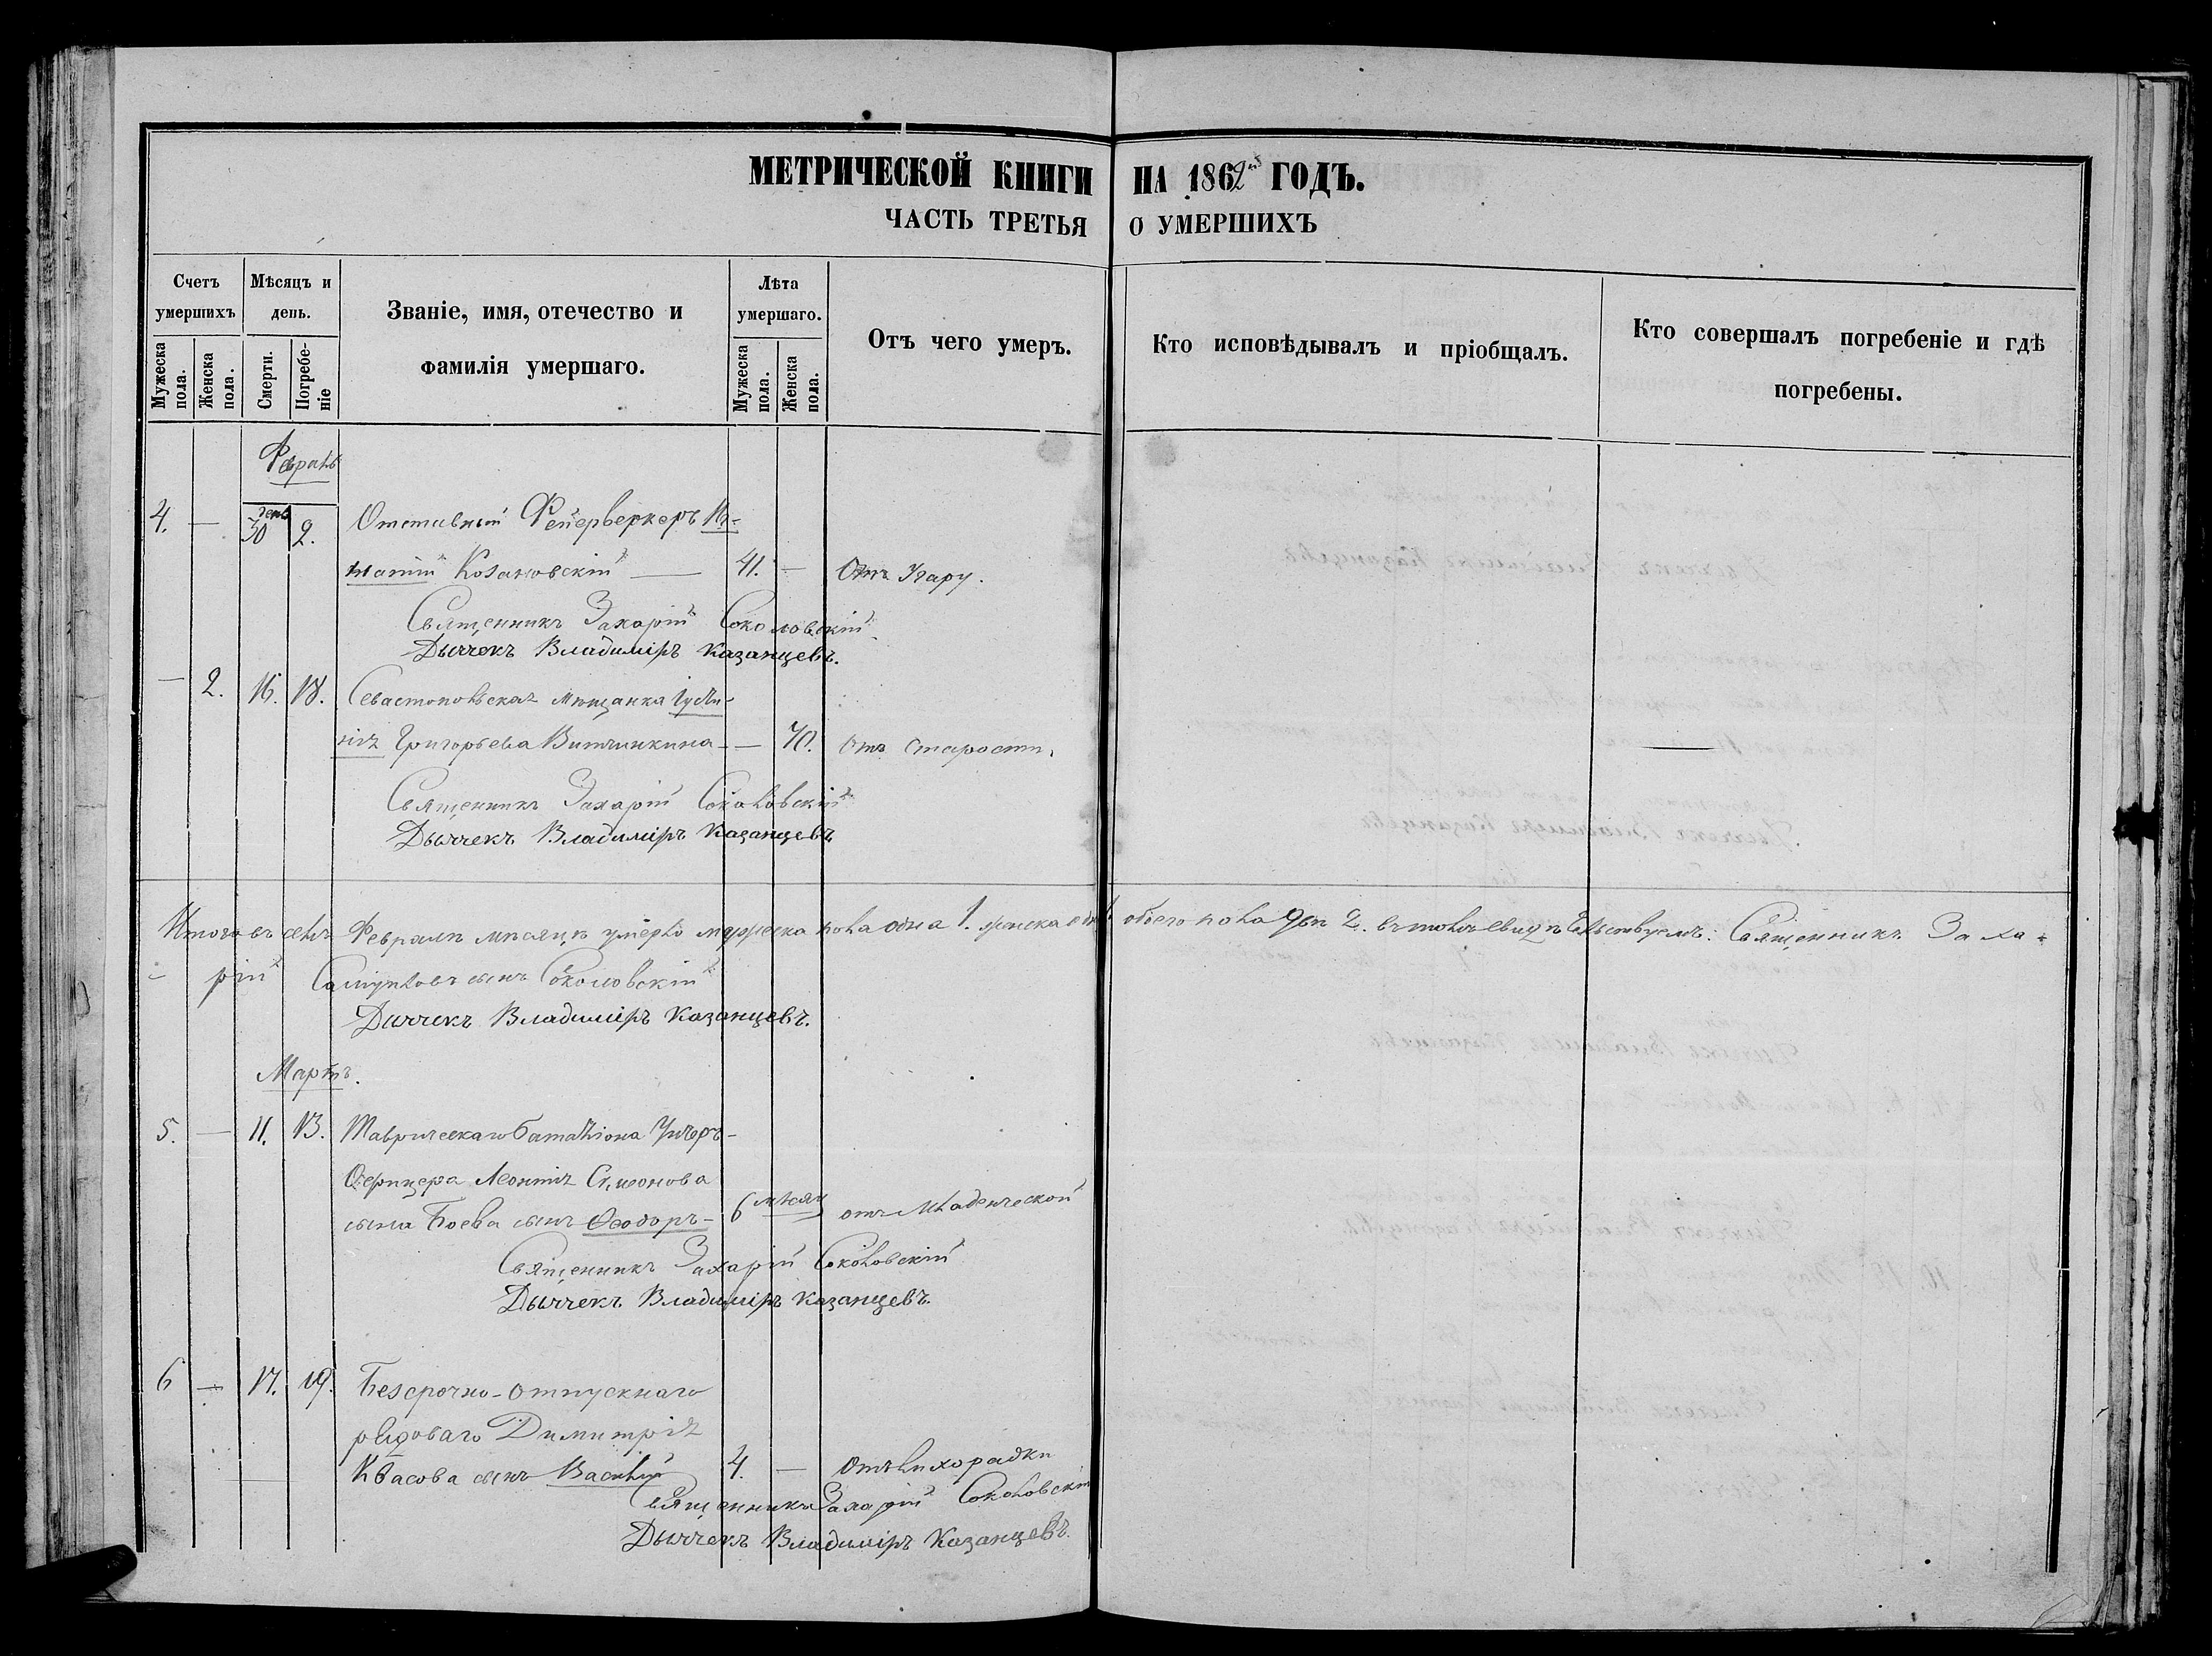 МЕТРИЧЕСКОЙ КНИГИ НА 1862й ГОДЪ.
ЧАСТЬ ТРЕТЬЯ О УМЕРШИХЪ
Счетъ умершихъ
Мужеска пола.
Женска пола.
Мѣсяцъ и день.
Смерти.
Погребе-ніе
Званіе, имя, отечество и фамилія умершаго.
Лѣта умершаго.
Мужеска пола.
Женска пола.
Отъ чего умеръ.
Кто исповѣдывалъ и пріобщалъ.
Кто совершалъ погребеніе и гдѣ погребены.
Февраль
4. — 30 2. Отставный Фейерверкеръ Иг-
натій Козановскій — 41. — Отъ Угару.
Священникъ Захарій Соколовскій
Дьячекъ Владиміръ Казанцевъ.
— 2. 16. 18. Севастопольская мѣщанка
Григорьева — 70. Отъ Старости.
Священникъ Захарій Соколовскій
Дьячекъ Владиміръ Казанцевъ
Итого въ семъ Февралѣ мѣсяцѣ умерло мужеска пола одна 1. женска одна обоего пола двѣ 2. въ томъ свидѣтельствуемъ: Священникъ Заха-
рій Самуиловъ сынъ Соколовскій
Дьячекъ Владиміръ Казанцевъ.
Мартъ.
5. — 11. 13. Таврическаго баталіона Унтеръ-
Офицера Леонтія Симонова
сына Боева сынъ Ѳеодоръ — 6 мѣсяц отъ Младенческой
Священникъ Захарій Соколовскій
Дьячекъ Владиміръ Казанцевъ.
6 — 17. 19. Безсрочно-отпускнаго
рядоваго Димитрія
Квасова сынъ Василій 4. — Отъ лихорадки
Священникъ Захарій Соколовскій
Дьячекъ Владиміръ Казанцевъ.